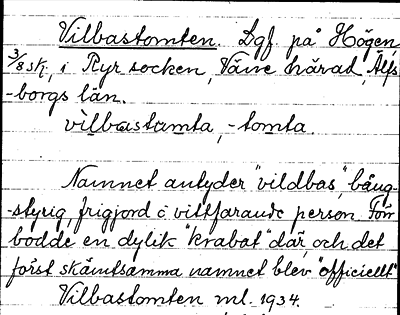 Vilbastomten. Lgf. på Högen,
3/8 sk., i Ryr socken, Väne härad, Älfs-
-borgs län.
vilbastamta, -tomta.
Namnet antyder "vildbas", bång-
-styrig, frigjord o. vittfarande person. För
bodde en dylik "krabat" där, och det
först skämtsamma namnet blev "officiellt"
Vilbastomten ml. 1934.